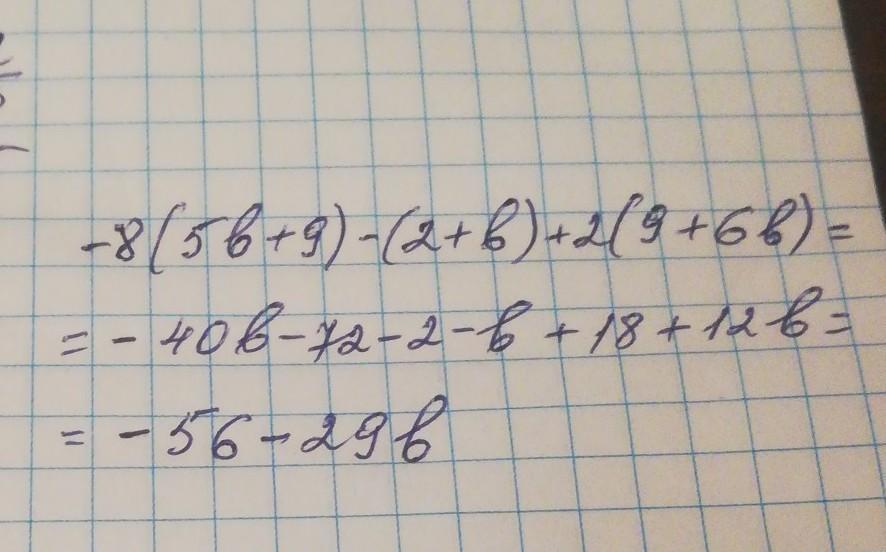 -8(5b+9)-(2+b)+2(9+6b)=
=-40b-72-2-b+18+12b=
=-56-29b